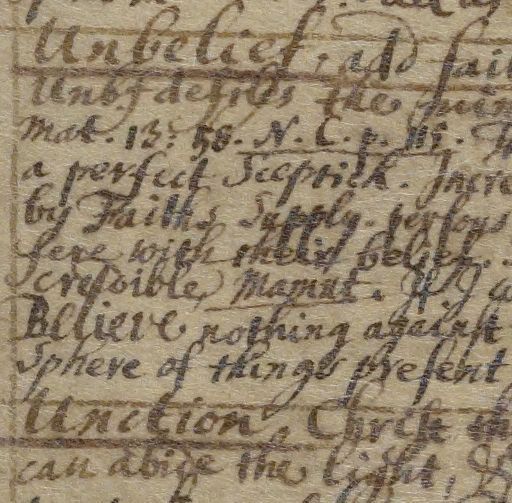 Unbelief, add fai
Unbf defiles the
Mat. 13: 58. N. C. p. 115.
a perfect Sceptick. Incre
by Faiths Supply. persons
fere with their belief.
credible, Mamut. If I
Believe nothing against
Sphere of things present
Unction, Christ th
can abide the light,